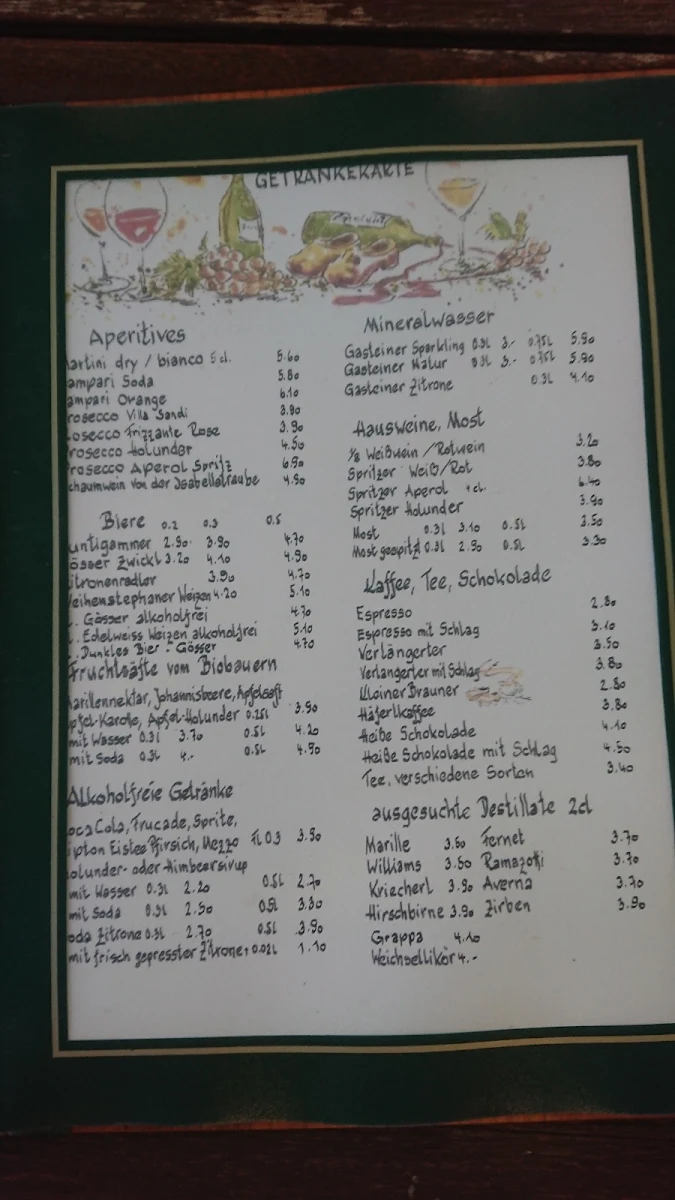 GETRÄNKEKARTE
Aperitives
artini dry / bianco 5 cl. 5.60
ampari Soda 5.80
ampari Orange 6.10
rosecco Villa Sandi 3.90
osecco Frizzante Rose 3.90
rosecco Holunder 4.50
rosecco Aperol Spritz 6.90
chaumwein von der Isabellatraube 4.90
Biere 0.2 0.3 0.5
untigammer 2.90 3.90 4.70
össer Zwickl 3.20 4.10 4.90
itronenradler 3.90 4.70
eihenstephaner Weizen 4.20 5.10
. Gösser alkoholfrei 4.70
. Edelweiss Weizen alkoholfrei 5.10
. Dunkles Bier - Gösser 4.70
Fruchtsäfte vom Biobauern
arillennektar, Johannisbeere, Apfelsaft
pfel-Karotte, Apfel-Holunder 0.25l 3.90
mit Wasser 0.3l 3.70 0.5l 4.20
mit Soda 0.3l 4.- 0.5l 4.50
Alkoholfreie Getränke
oca Cola, Frucade, Sprite,
ipton Eistee Pfirsich, Mezzo Fl 0.3 3.50
olunder- oder Himbeersirup
mit Wasser 0.3l 2.20 0.5l 2.70
mit Soda 0.3l 2.50 0.5l 3.30
oda Zitrone 0.3l 2.70 0.5l 3.90
mit frisch gepresster Zitrone + 0.02l 1.10
Mineralwasser
Gasteiner Sparkling 0.3l 3.- 0.75l 5.90
Gasteiner Natur 0.3l 3.- 0.75l 5.90
Gasteiner Zitrone 0.3l 4.10
Hausweine, Most
1/8 Weißwein / Rotwein 3.20
Spritzer Weiß/Rot 3.80
Spritzer Aperol 4 cl. 6.40
Spritzer Holunder 3.90
Most 0.3l 3.10 0.5l 3.50
Most gespritzt 0.3l 2.90 0.5l 3.30
Kaffee, Tee, Schokolade
Espresso 2.80
Espresso mit Schlag 3.10
Verlängerter 3.50
Verlängerter mit Schlag 3.80
Kleiner Brauner 2.80
Häferlkaffee 3.80
Heiße Schokolade 4.10
Heiße Schokolade mit Schlag 4.50
Tee, verschiedene Sorten 3.40
ausgesuchte Destillate 2cl
Marille 3.50 Fernet 3.70
Williams 3.50 Ramazotti 3.70
Kriecherl 3.90 Averna 3.70
Hirschbirne 3.90 Zirben 3.90
Grappa 4.10
Weichsellikör 4.-